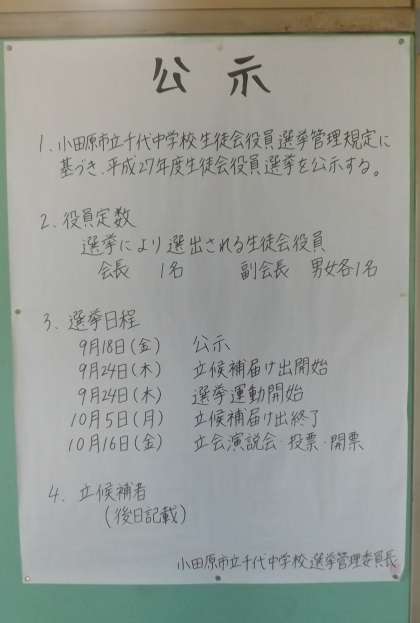 公示
1. 小田原市立千代中学校生徒会役員選挙管理規定に
基づき、平成27年度生徒会役員選挙を公示する。
2. 役員定数
選挙により選出される生徒会役員
会長 1名 副会長 男女各1名
3. 選挙日程
9月18日(金) 公示
9月24日(木) 立候補届け出開始
9月24日(木) 選挙運動開始
10月5日(月) 立候補届け出終了
10月16日(金) 立会演説会・投票・開票
4. 立候補者
(後日記載)
小田原市立千代中学校選挙管理委員長